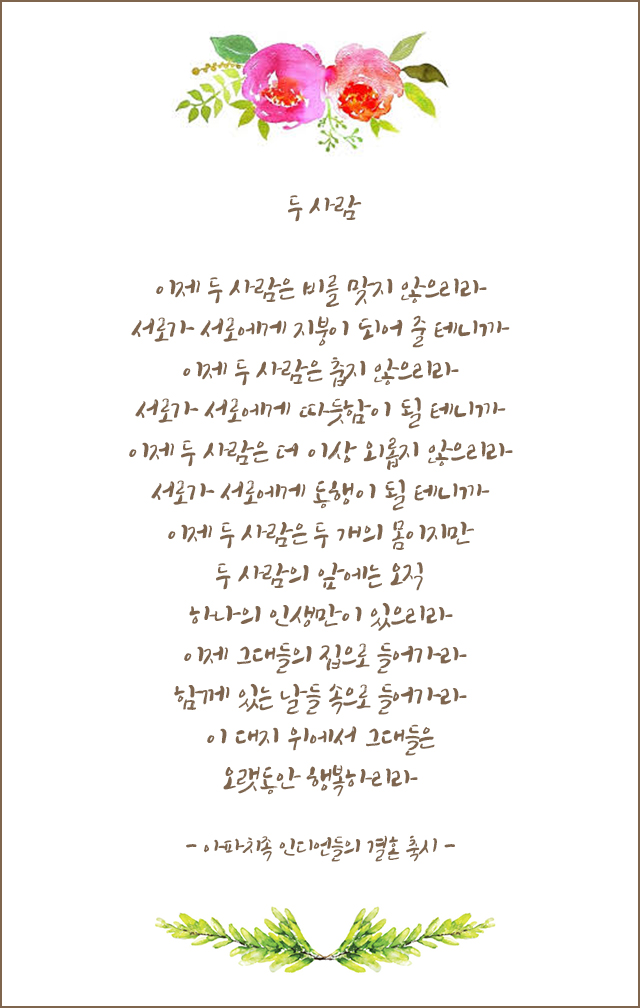 두 사람
이제 두 사람은 비를 맞지 않으리라
서로가 서로에게 지붕이 되어 줄 테니까
이제 두 사람은 춥지 않으리라
서로가 서로에게 따뜻함이 될 테니까
이제 두 사람은 더 이상 외롭지 않으리라
서로가 서로에게 동행이 될 테니까
이제 두 사람은 두 개의 몸이지만
두 사람의 앞에는 오직
하나의 인생만이 있으리라
이제 그대들의 집으로 들어가라
함께 있는 날들 속으로 들어가라
이 대지 위에서 그대들은
오랫동안 행복하리라
- 아파치족 인디언들의 결혼 축시 -